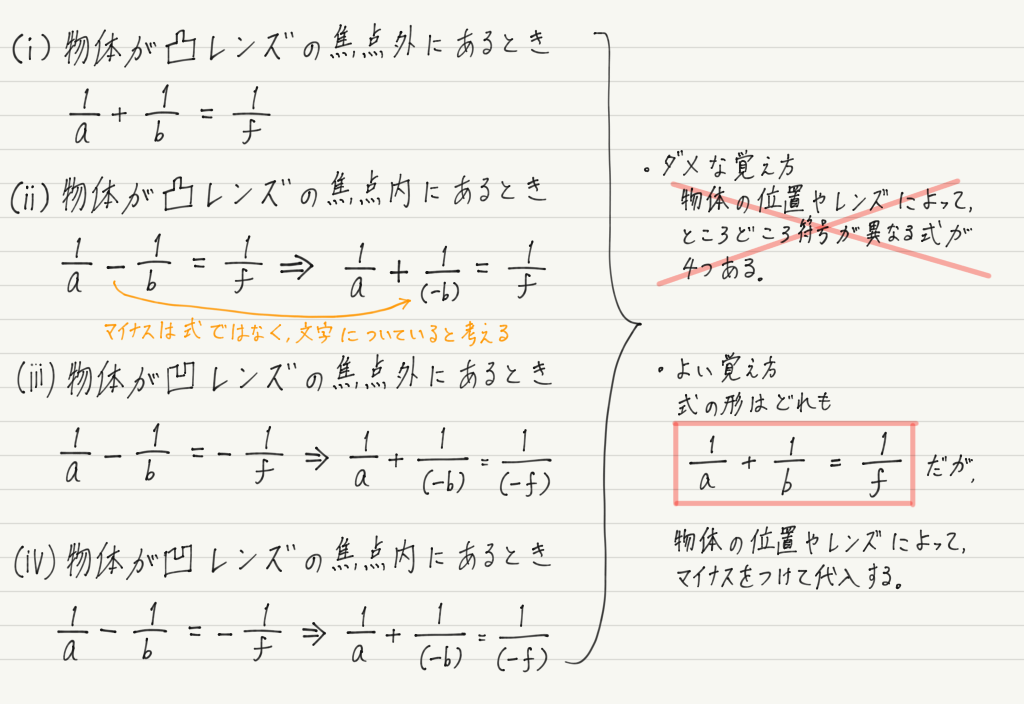 (i) 物体が凸レンズの焦点外にあるとき
1/a + 1/b = 1/f
(ii) 物体が凸レンズの焦点内にあるとき
1/a - 1/b = 1/f ⇒ 1/a + 1/(-b) = 1/f
マイナスは式ではなく,文字についていると考える
(iii) 物体が凹レンズの焦点外にあるとき
1/a - 1/b = - 1/f ⇒ 1/a + 1/(-b) = 1/(-f)
(iv) 物体が凹レンズの焦点内にあるとき
1/a - 1/b = - 1/f ⇒ 1/a + 1/(-b) = 1/(-f)
・ダメな覚え方
物体の位置やレンズによって,
ところどころ符号が異なる式が
4つある。
・よい覚え方
式の形はどれも
1/a + 1/b = 1/f だが,
物体の位置やレンズによって,
マイナスをつけて代入する。